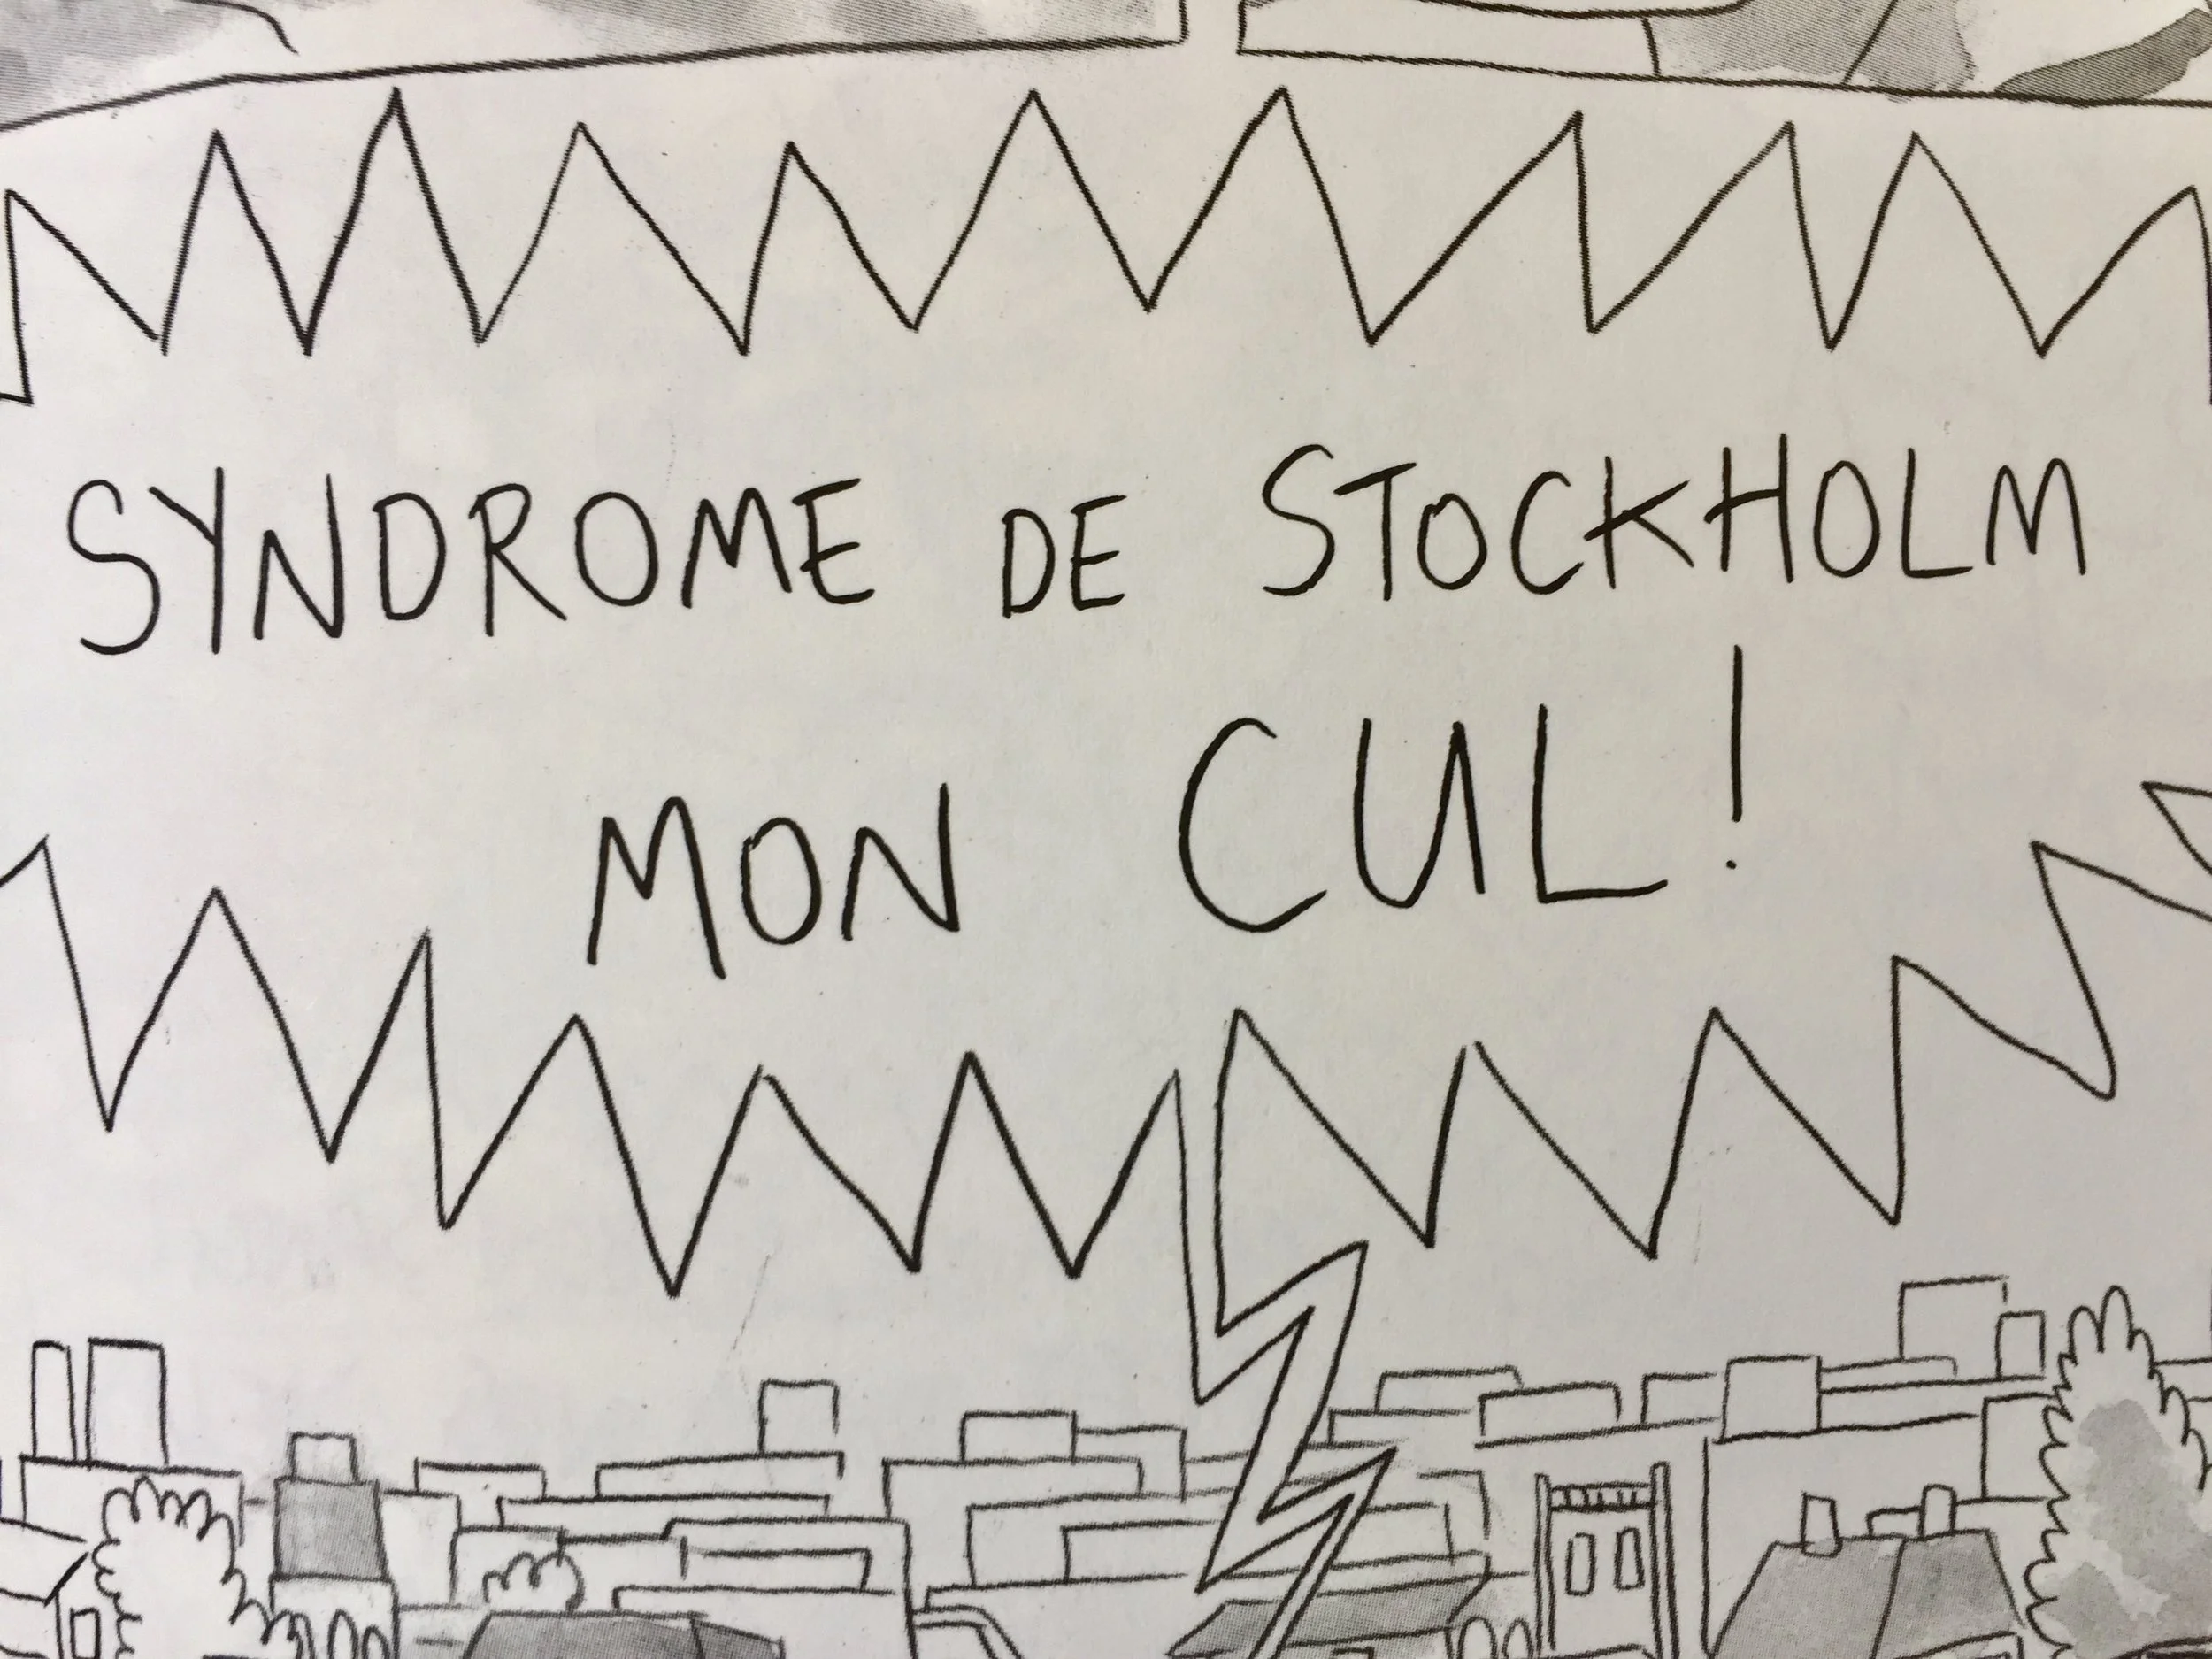 SYNDROME DE STOCKHOLM
MON CUL!